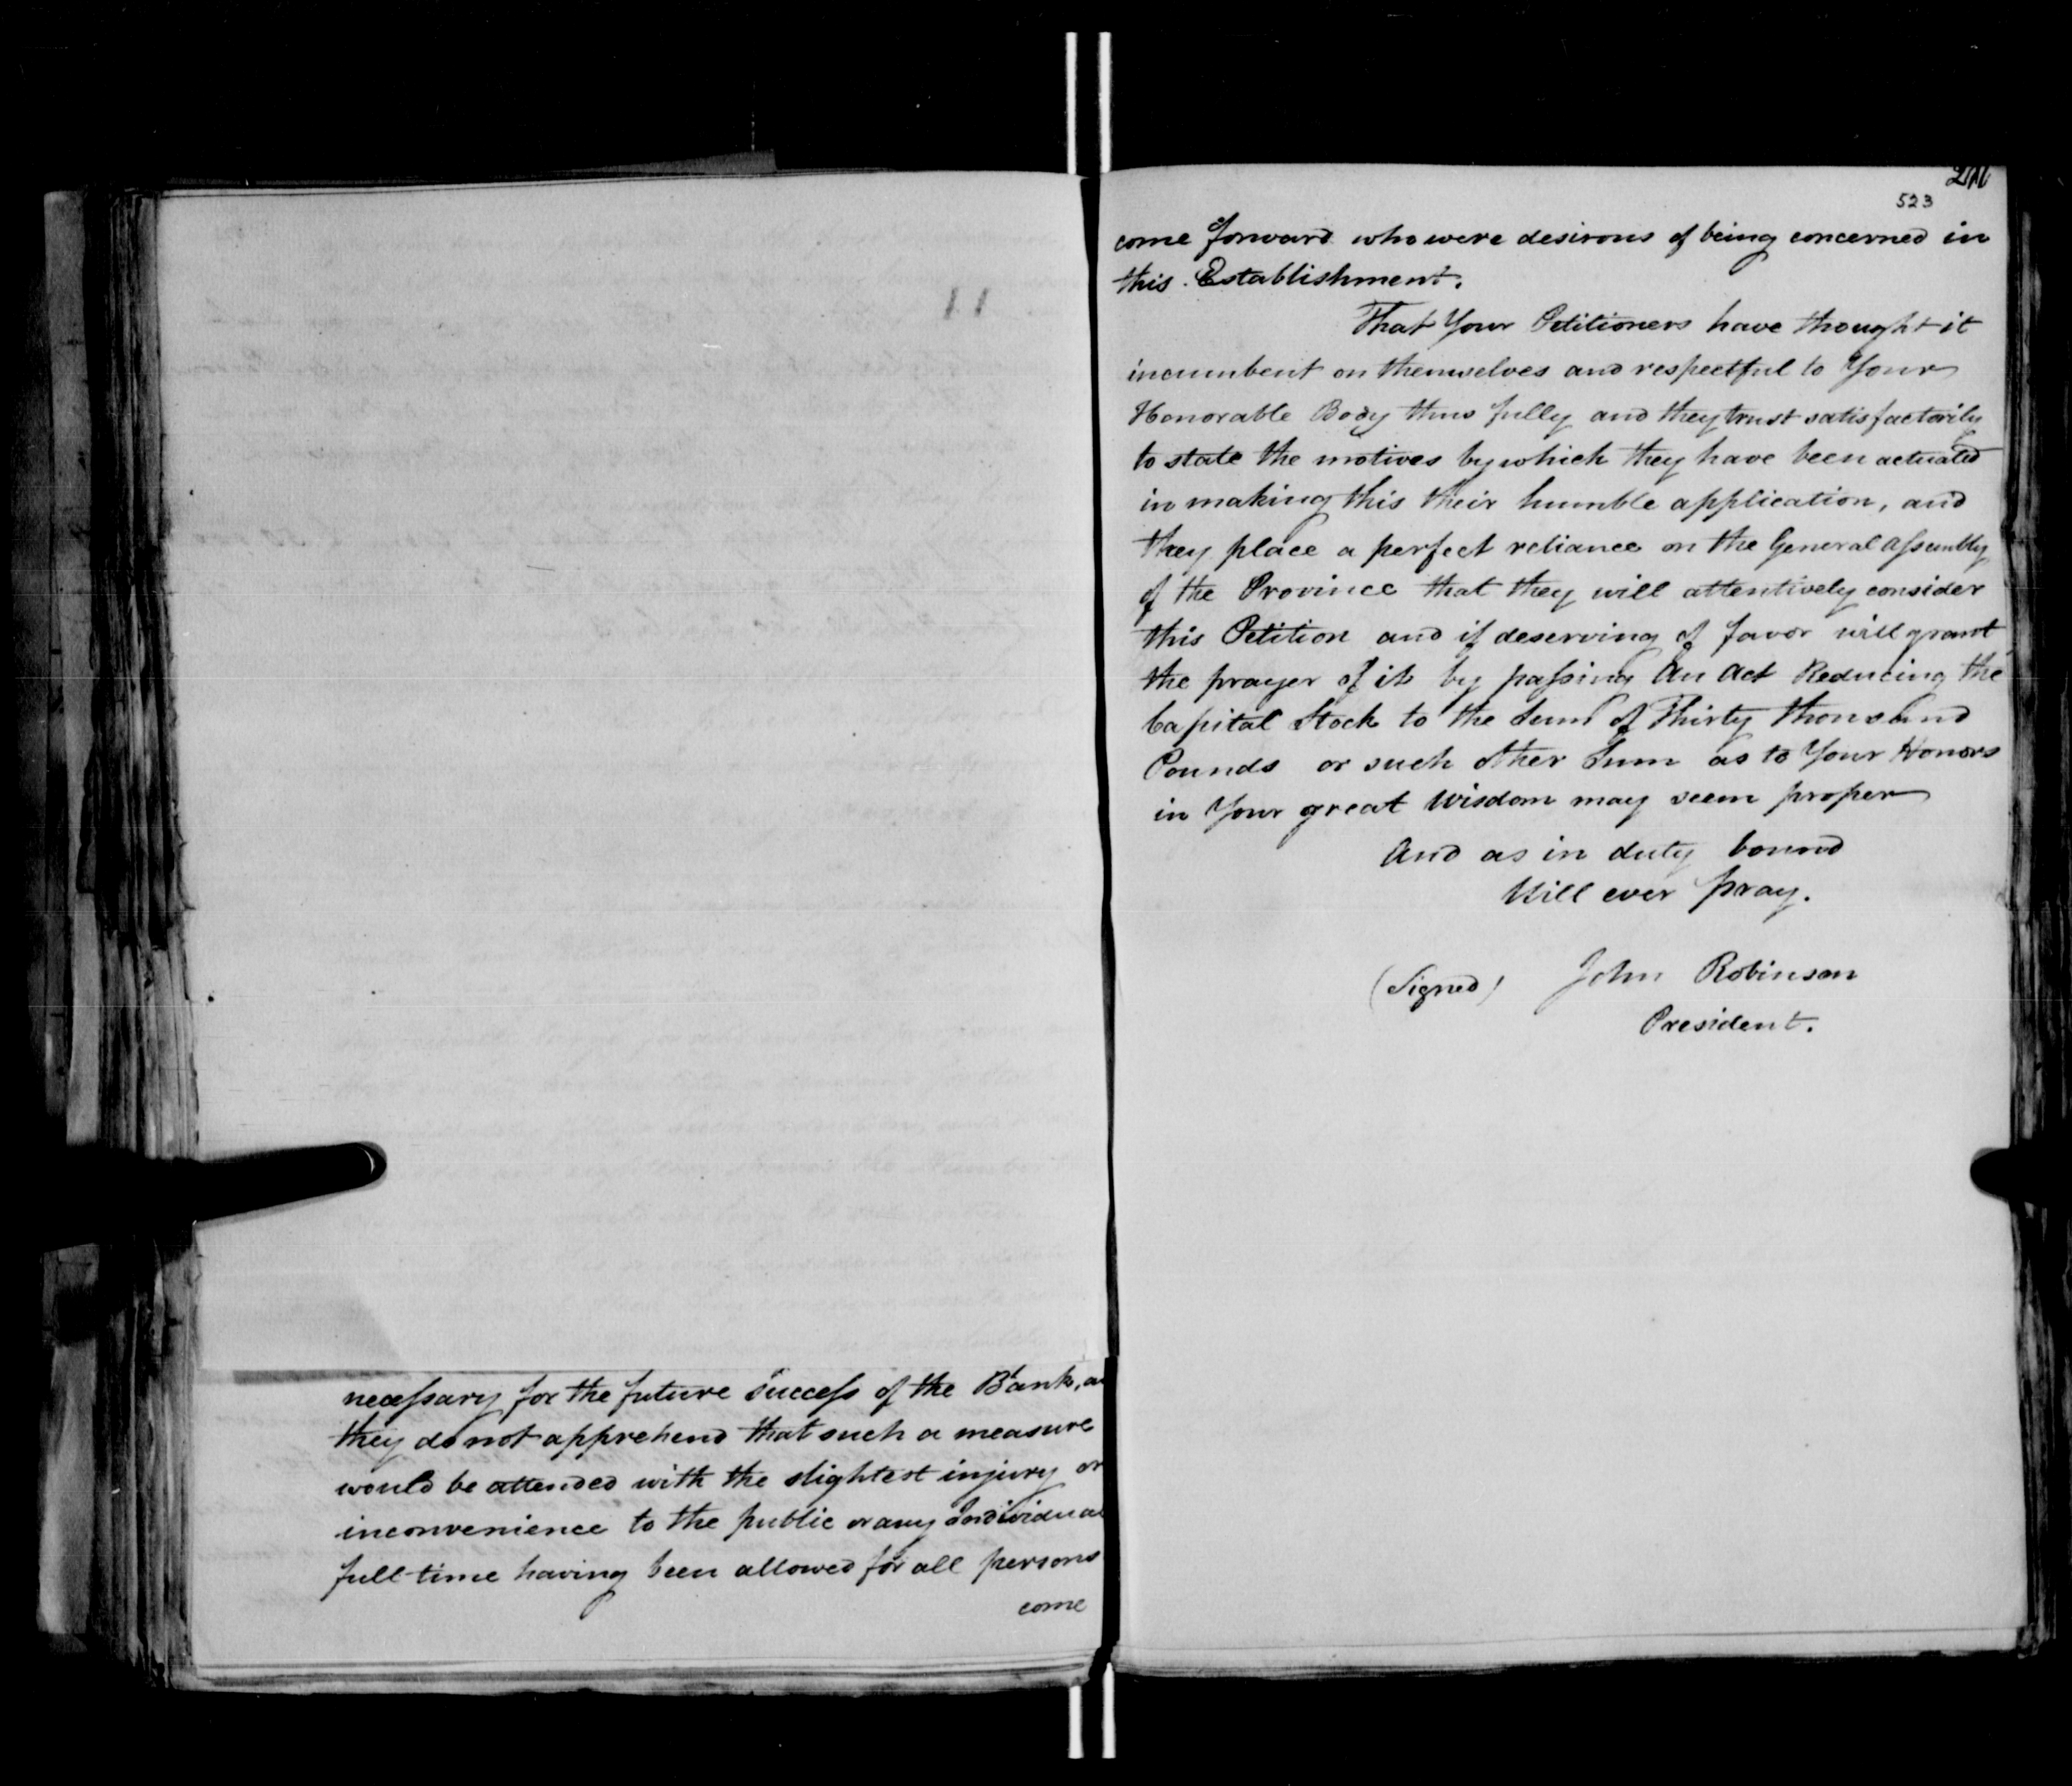 necessary for the future success of the Bank,
they do not apprehend that such a measure
would be attended with the slightest injury or
inconvenience to the public or any
full time having been allowed for all persons
come
523
come forward who were desirous of being concerned in
this Establishment.
That Your Petitioners have thought it
incumbent on themselves and respectful to Your
Honorable Body thus fully and they trust satisfactorily
to state the motives by which they have been actuated
in making this their humble application, and
they place a perfect reliance on the General Assembly
of the Province that they will attentively consider
this Petition and if deserving of favor will grant
the prayer of it by passing An Act Reducing the
Capital Stock to the Sum of Thirty thousand
Pounds or such other Sum as to Your Honors
in Your great Wisdom may seem proper
And as in duty bound
Will ever pray.
(Signed) John Robinson
President.